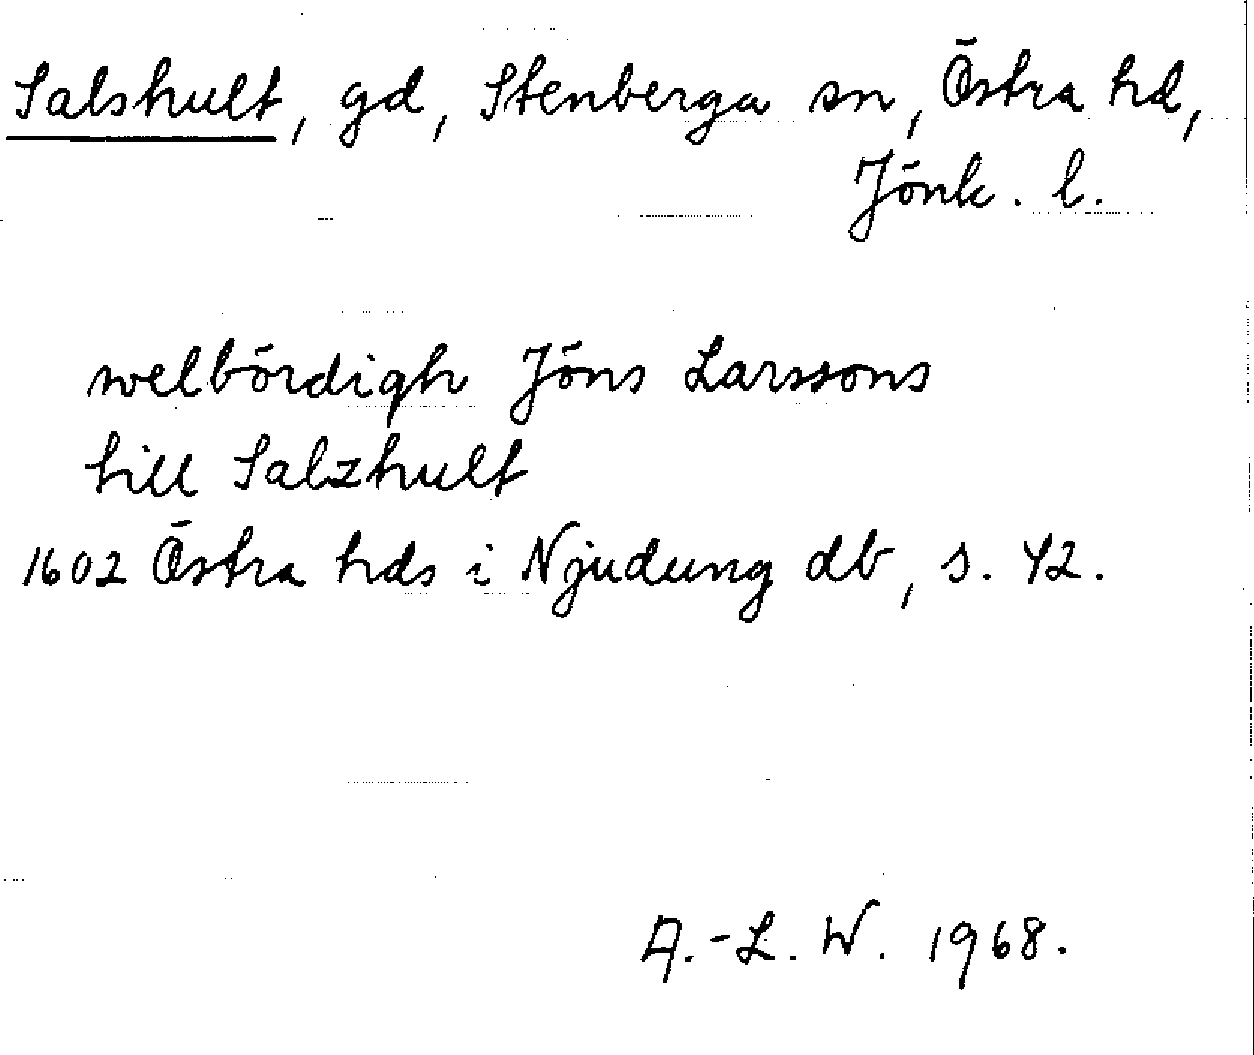 Salshult, gd, Stenberga sn, Östra hd,
Jönk. l.
welbördigh Jöns Larssons
till Salzhult
1602 Östra hds i Njudung db, s. 42.
A.-L. W. 1968.